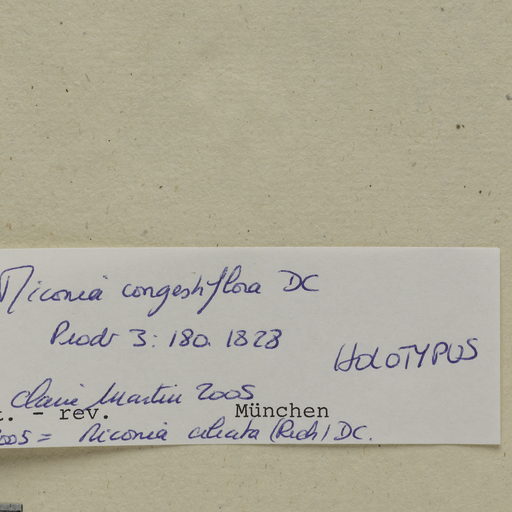 Miconia congestiflora DC
Prodr 3: 180. 1828
HOLOTYPUS
Claire Martin 2005
t. - rev. München
2005 = Miconia ciliata (Rich) DC.